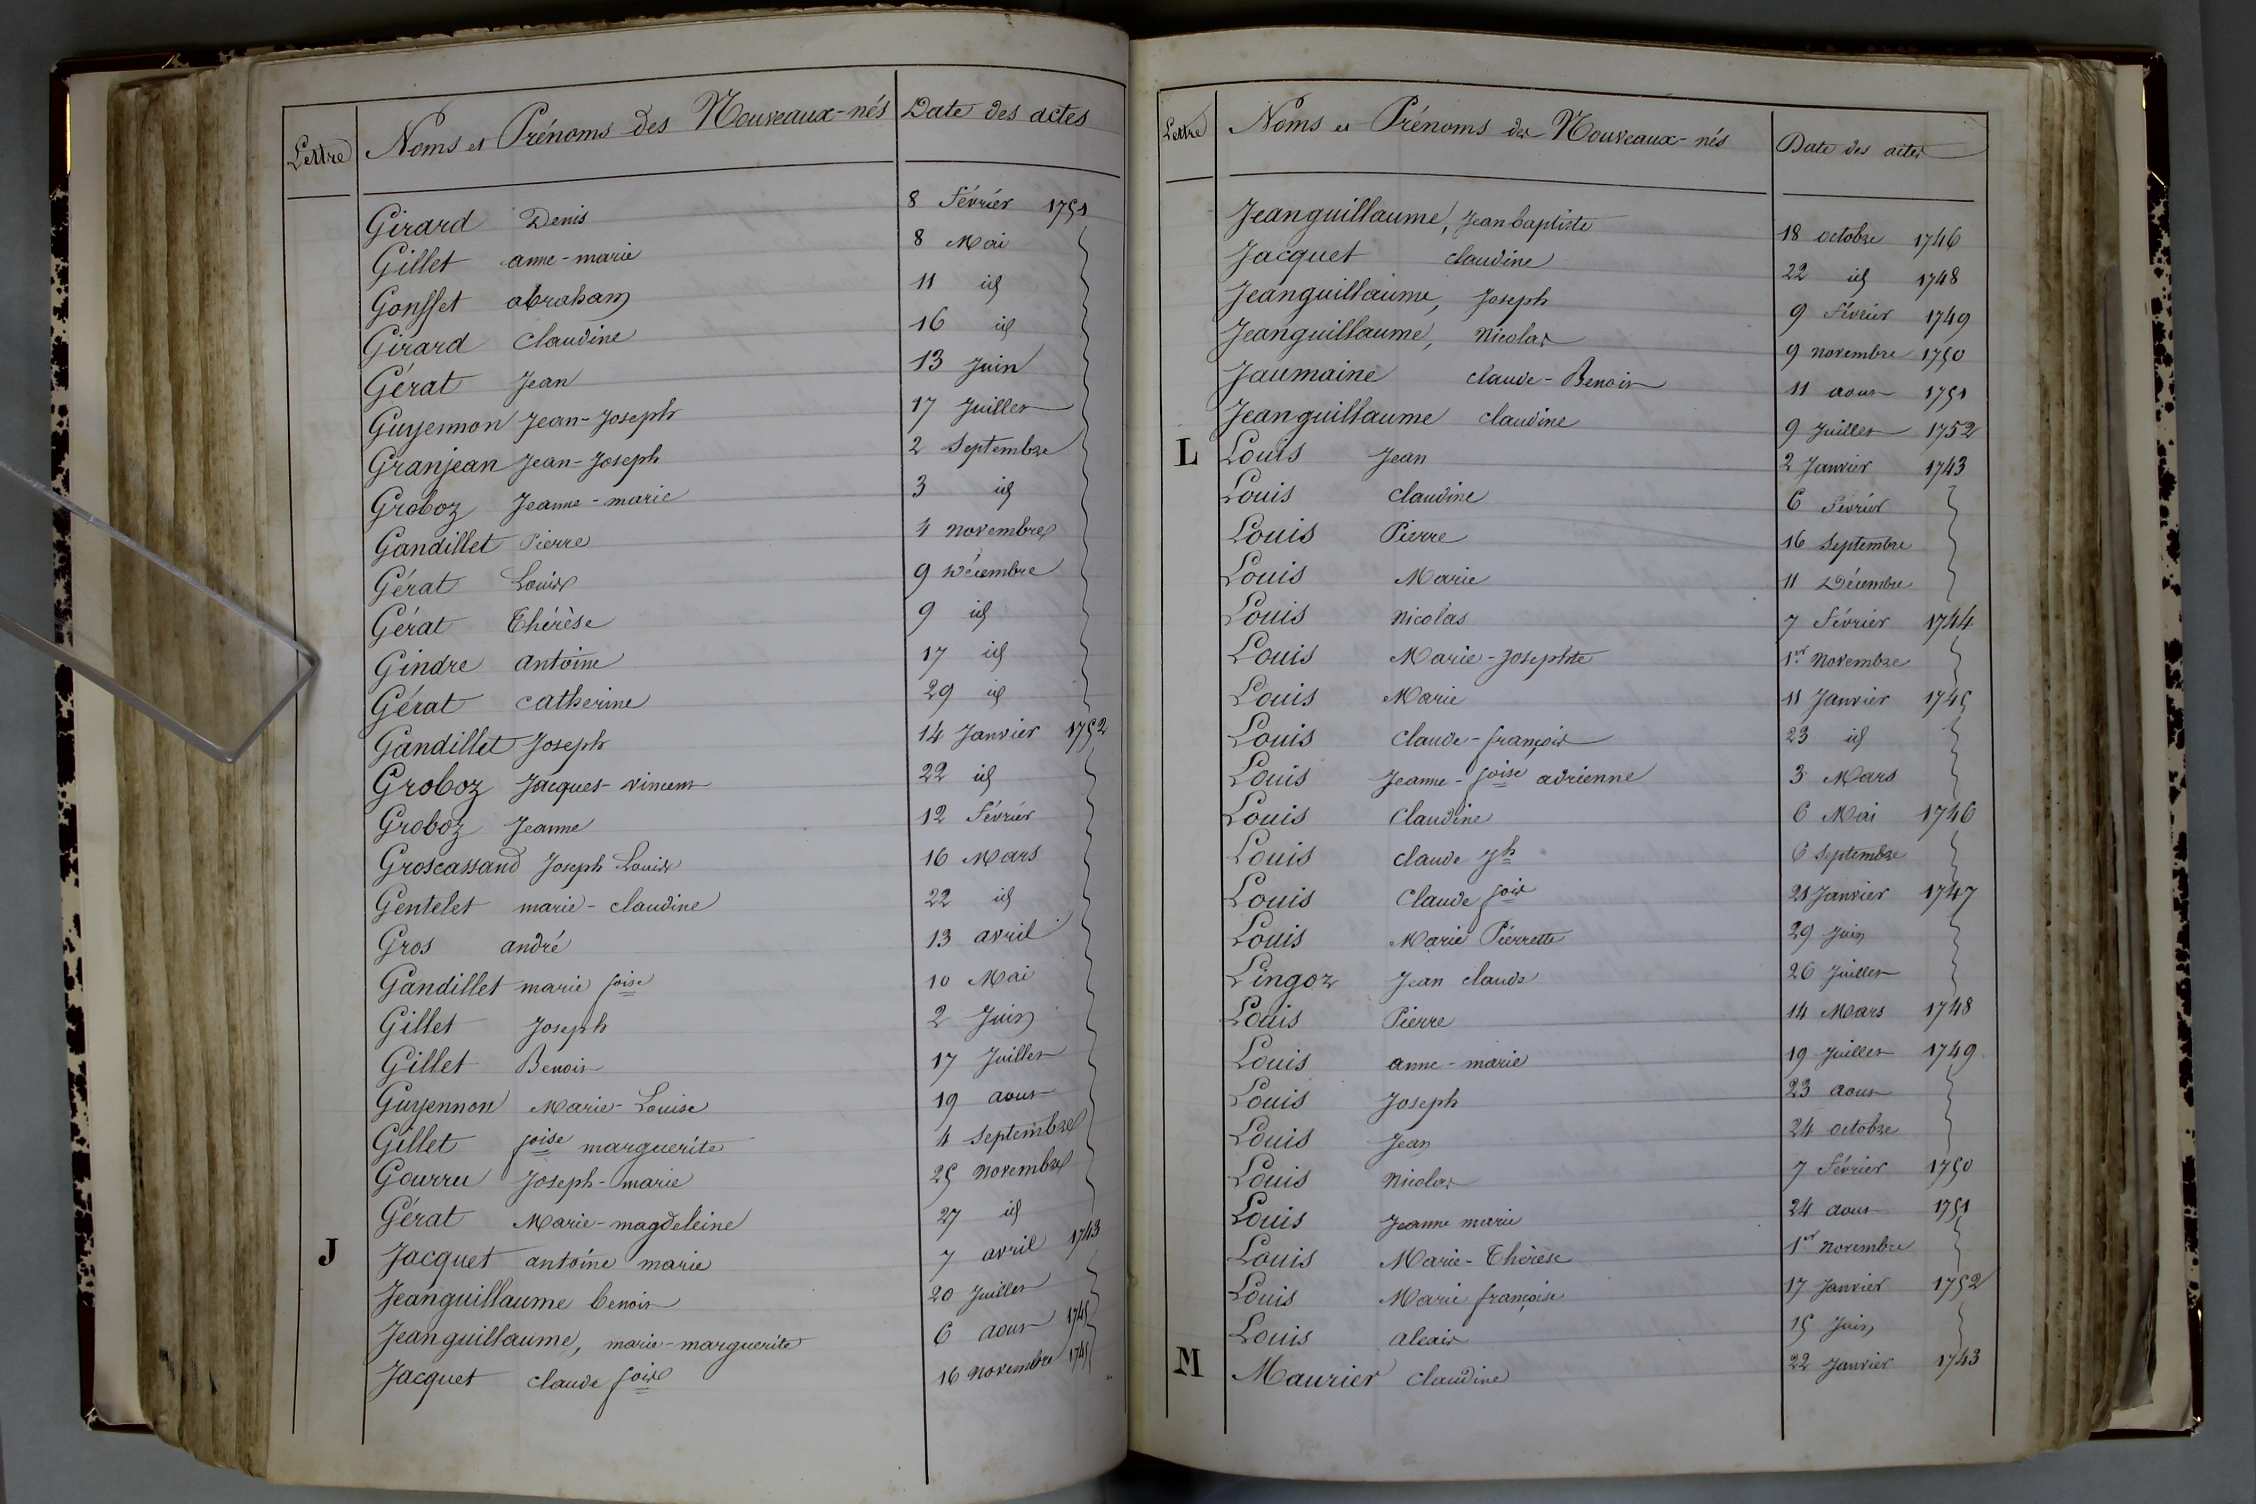 Lettre Noms et Prénoms des Nouveaux-nés Date des actes
Girard Denis 8 Février 1751
Gillet anne-marie 8 Mai
Gonsset abraham 11 id
Girard Claudine 16 id
Gérat Jean 13 Juin
Guyennon Jean-Joseph 17 Juillet
Granjean Jean-Joseph 2 Septembre
Groboz Jeanne-marie 3 id
Gandillet Pierre 4 Novembre
Gérat Louis 9 Décembre
Gérat Thérèse 9 id
Gindre antoine 17 id
Gérat catherine 29 id
Gandillet Joseph 14 Janvier 1752
Groboz Jacques-vincent 22 id
Groboz Jeanne 12 Février
Groscassand Joseph Louis 16 Mars
Gentelet marie-claudine 22 id
Gros andré 13 avril
Gandillet marie foise 10 Mai
Gillet Joseph 2 Juin
Gillet Benoit 17 Juillet
Guyennon Marie-Louise 19 aout
Gillet foise marguerite 4 Septembre
Gourru Joseph-marie 25 Novembre
Gérat Marie-magdeleine 27 id
J Jacquet antoine marie 7 avril 1743
Jeanguillaume benoit 20 Juillet
Jeanguillaume, marie-marguerite 6 aout 1745
Jacquet claude fois 16 Novembre 1745
Lettre Noms et Prénoms des Nouveaux-nés Date des actes
Jeanguillaume, Jean baptiste 18 octobre 1746
Jacquet claudine 22 id 1748
Jeanguillaume, Joseph 9 Février 1749
Jeanguillaume, Nicolas 9 novembre 1750
Jaumaine claude-Benoit 11 aout 1751
Jeanguillaume claudine 9 Juillet 1752
L Louis Jean 2 Janvier 1743
Louis Claudine 6 Février
Louis Pierre 16 Septembre
Louis Marie 11 Décembre
Louis Nicolas 7 Février 1744
Louis Marie-Josephte 1er Novembre
Louis Marie 11 Janvier 1745
Louis Claude-françois 23 id
Louis Jeanne-foise adrienne 3 Mars
Louis Claudine 6 Mai 1746
Louis claude jh 6 Septembre
Louis Claude fois 21 Janvier 1747
Louis Marie Pierrette 29 Juin
Lingoz Jean claude 26 Juillet
Louis Pierre 14 Mars 1748
Louis anne-marie 19 Juillet 1749
Louis Joseph 23 aout
Louis Jean 24 octobre
Louis Nicolas 7 Février 1750
Louis Jeanne marie 24 aout 1751
Louis Marie-Thérèse 1er Novembre
Louis Marie françoise 17 Janvier 1752
Louis alexis 15 Juin
M Maurier Claudine 22 Janvier 1743